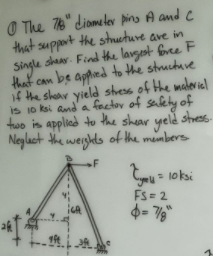 ① The 7/8" diameter pins A and C
that support the structure are in
single shear. Find the largest force F
that can be applied to the structure
if the shear yield stress of the material
is 10 ksi and a factor of safety of
two is applied to the shear yeld stress.
Neglect the weights of the members
B F
τyield = 10 ksi
FS = 2
6ft
Φ = 7/8"
A 4
2ft
4ft 3ft C